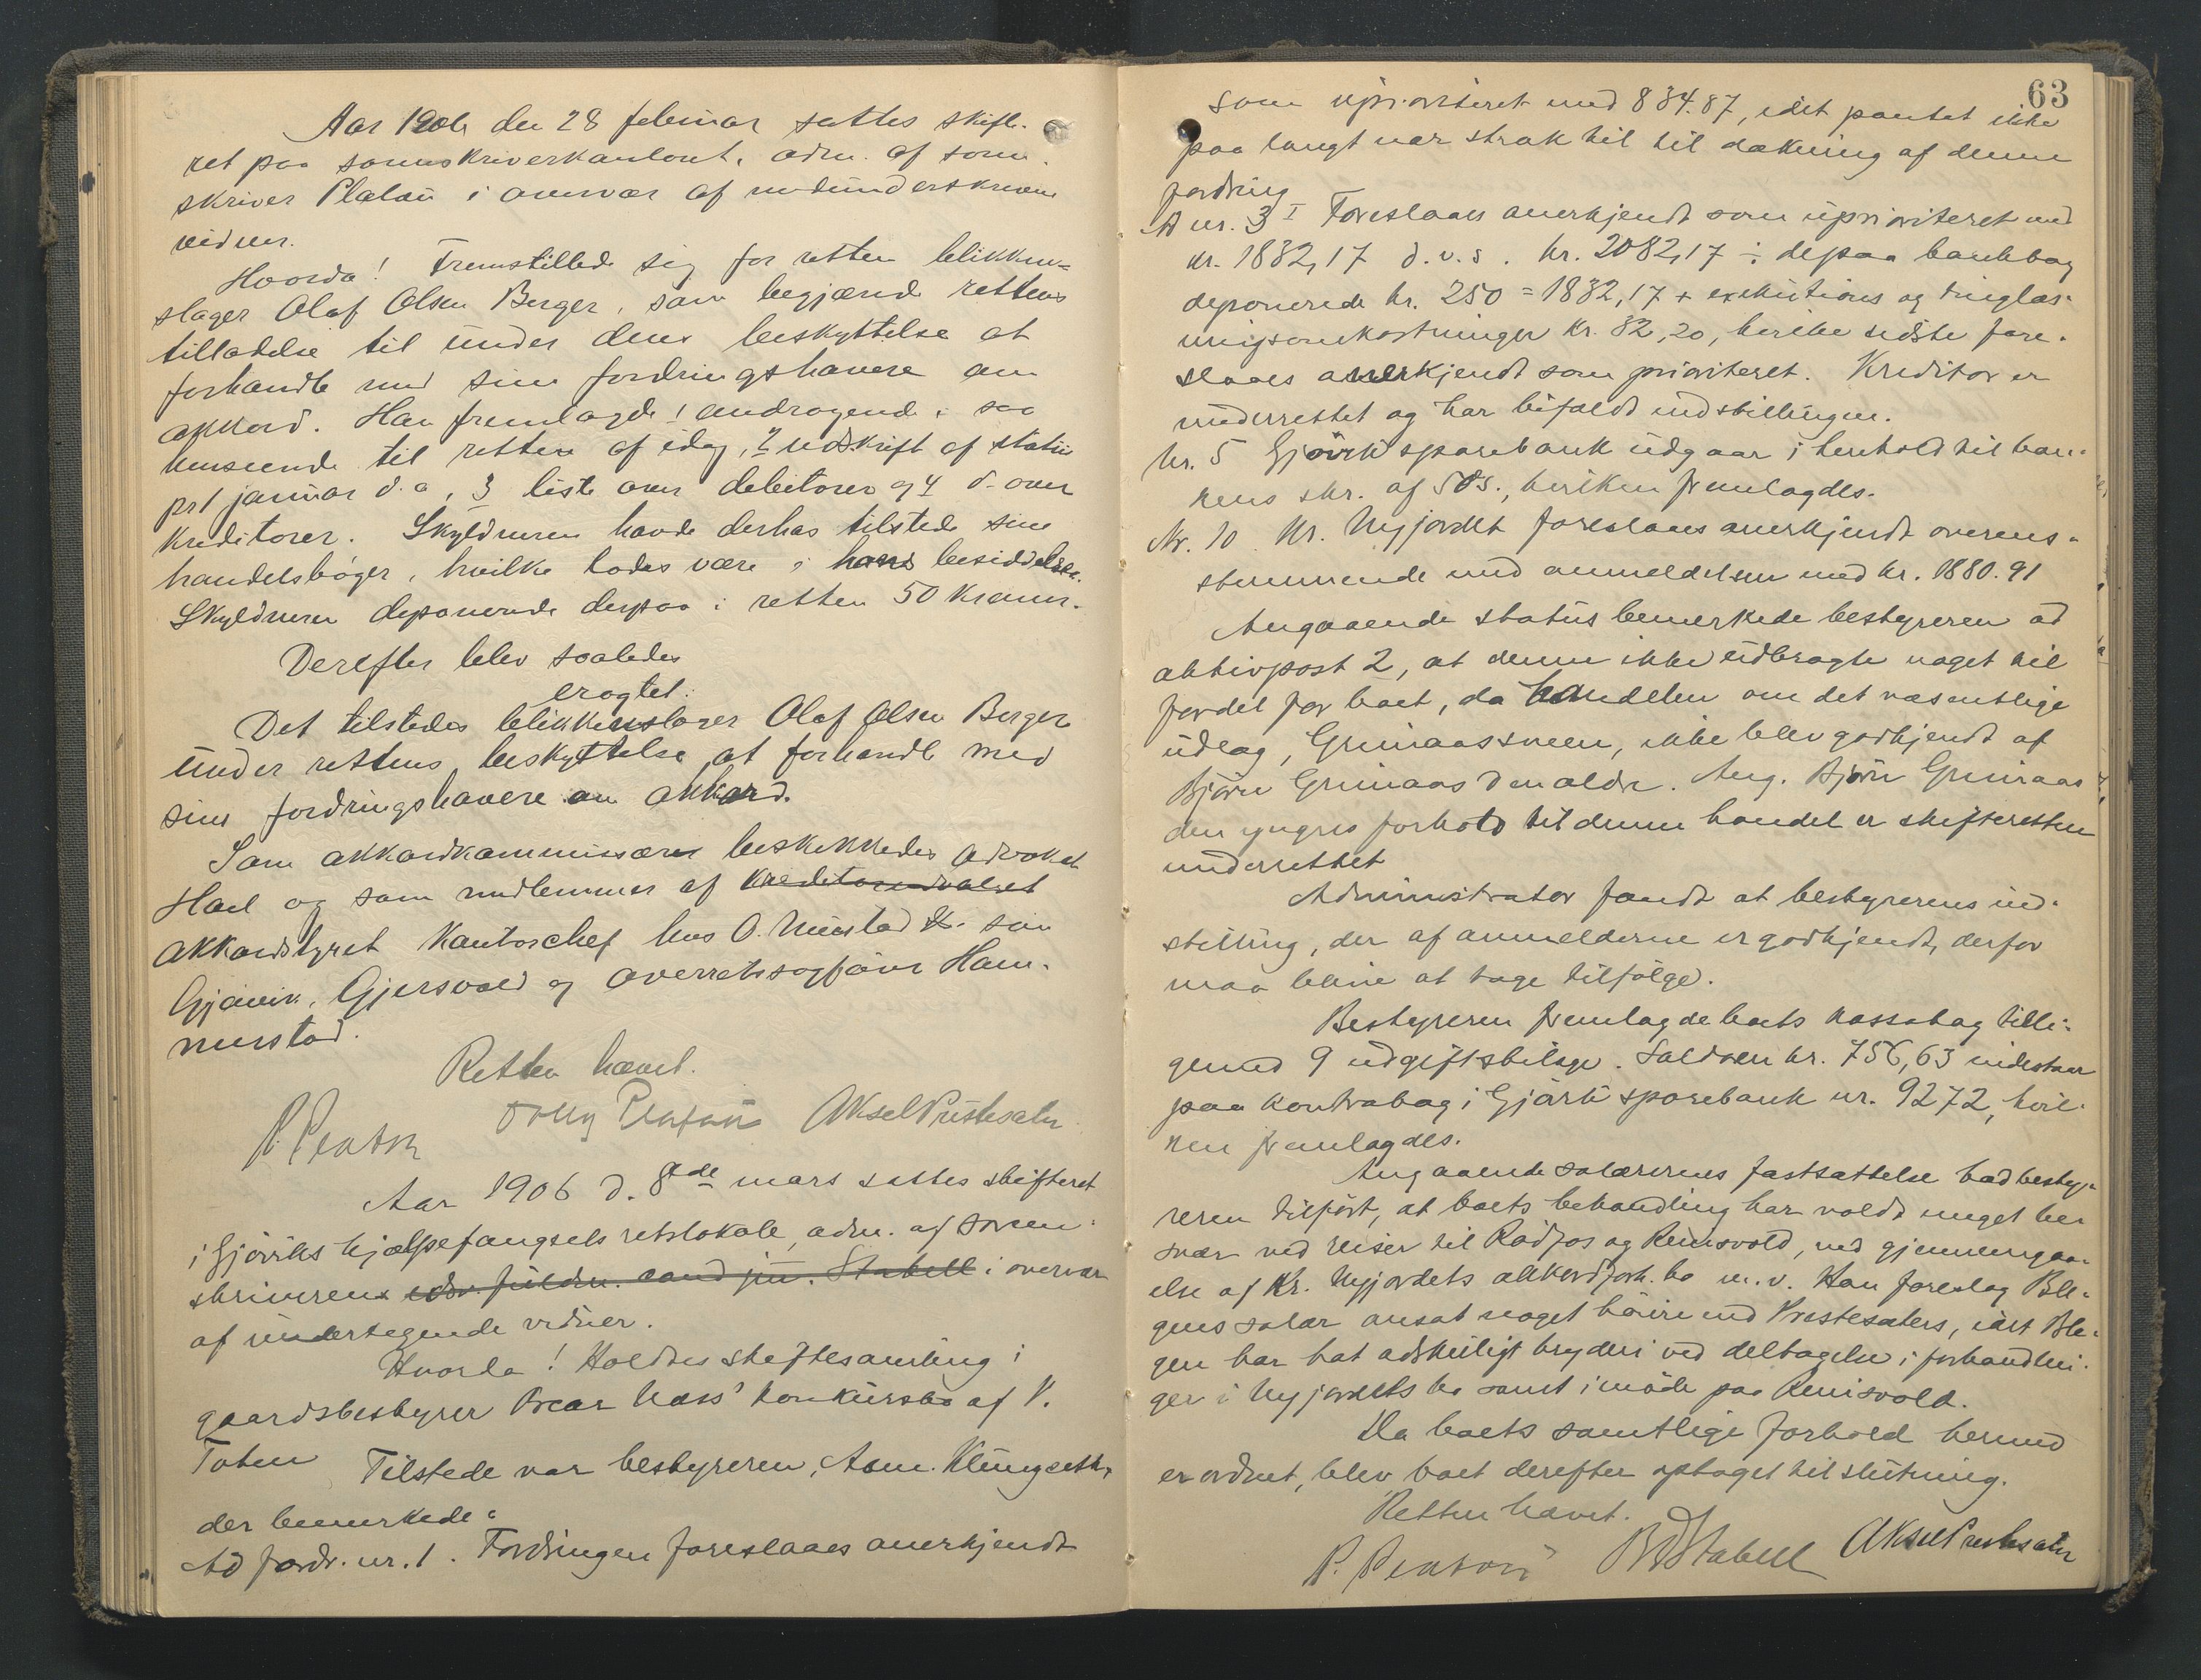 Aar 1906 den 28 februar sattes skifte-
ret paa sorenskriverkontoret, adm. af soren-
skriver Platou i overvær af medunderskrevne
vidner.
Hvorda! Fremstillede sig for retten blikken-
slager Olaf Olsen Berger, som begjærede rettens
tilladelse til under dens beskyttelse at
forhandle med sine fordringshavere om
akkord. Han fremlagde 1 andragende i saa
henseende til retten af idag, 2 udskrift af status
pr 1 januar d.a, 3 liste over debitorer og 4 d. over
kreditorer. Skyldneren havde derhos tilstede sine
handelsbøger, hvilke lodes være i hans besiddelse.
Skyldneren deponerede derpaa i retten 50 kroner.
Derefter blev saaledes
eragtet:
Det tilstedes blikkenslager Olaf Olsen Berger
under rettens beskyttelse at forhandle med
sine fordringshavere om akkord.
Som akkordkommissær beskikkedes advokat
Hael og som medlemmer af kreditorudvalget
akkordstyret kontorchef hos O. Mustad &. søn
Gjøvik, Gjersvold og overretssagfører Ham-
merstad.
Retten hævet.
P. Platou Platou Aksel Prestesæter
Aar 1906 d. 8de mars sattes skifteret
i Gjøviks hjælpefængsels retslokale, adm. af soren-
skriveren edsv. fuldm. cand jur. Stabell i overvær
af undertegnede vidner.
Hvorda! Holdtes skiftesamling i
gaardsbestyrer Oscar Næss' konkursbo af V.
Toten Tilstede var bestyreren, Anm. Klungseth,
der bemerkede:
Ad fordr. nr. 1. Fordringen foreslaaes anerkjendt
63
som uprioriteret med 834.87, idet pantet ikke
paa langt nær strak til til dækning af denne
fordring
A nr. 3 I Foreslaaes anerkjendt som uprioriteret med
kr. 1832,17 d.v.s. kr. 2082,17 ÷ de paa bankbog
deponerede kr. 250 = 1832,17 + exekutions og tinglæs-
ningsomkostninger kr. 32,20, hvilke sidste fore-
slaaes anerkjendt som prioriteret. Kreditor er
underrettet og har bifaldt indstillingen.
Nr. 5 Gjøvik sparebank udgaar i henhold til ban-
kens skr. af 5ds., hvilken fremlagdes.
Nr. 10. Kr. Nyjordet foreslaaes anerkjendt overens-
stemmende med anmeldelsen med kr. 1880.91
Angaaende status bemerkede bestyreren ad
aktivpost 2, at denne ikke udbragte noget til
fordel for boet, da handelen om det væsentlige
udlæg, Grimaassveen, ikke blev godkjendt af
Bjørn Grimaas den ældre. Ang. Bjørn Grimaas
den yngres forhold til denne handel er skifteretten
underrettet
Administrator fandt at bestyrerens ind-
stilling, der af anmelderne er godkjendt, derfor
maa blive at tage tilfølge.
Bestyreren fremlagde boets kassabog tilli-
gemed 9 udgiftsbilage. Saldoen kr. 756,63 indestaar
paa kontrabog i Gjøvik sparebank nr. 9272, hvil-
ken fremlagdes.
Angaaende salærernes fastsættelse bad besty-
reren tilført, at boets behandling har voldt meget be-
svær ved reiser til Rødfos og Reinsvold, ved gjennemgaa-
else af Kr. Nyjordets akkordforh. bo m.v. Han foreslog Ble-
gens salær ansat noget høiere end Prestesæters, idet Ble-
gen har hat adskilligt bryderi ved deltagelse i forhandlin-
ger i Nyjordets bo samt i møde paa Reinsvold.
Da boets samtlige forhold hermed
er ordnet, blev boet derefter optaget til slutning.
Retten hævet.
P. Platou Stabell Aksel Prestesæter